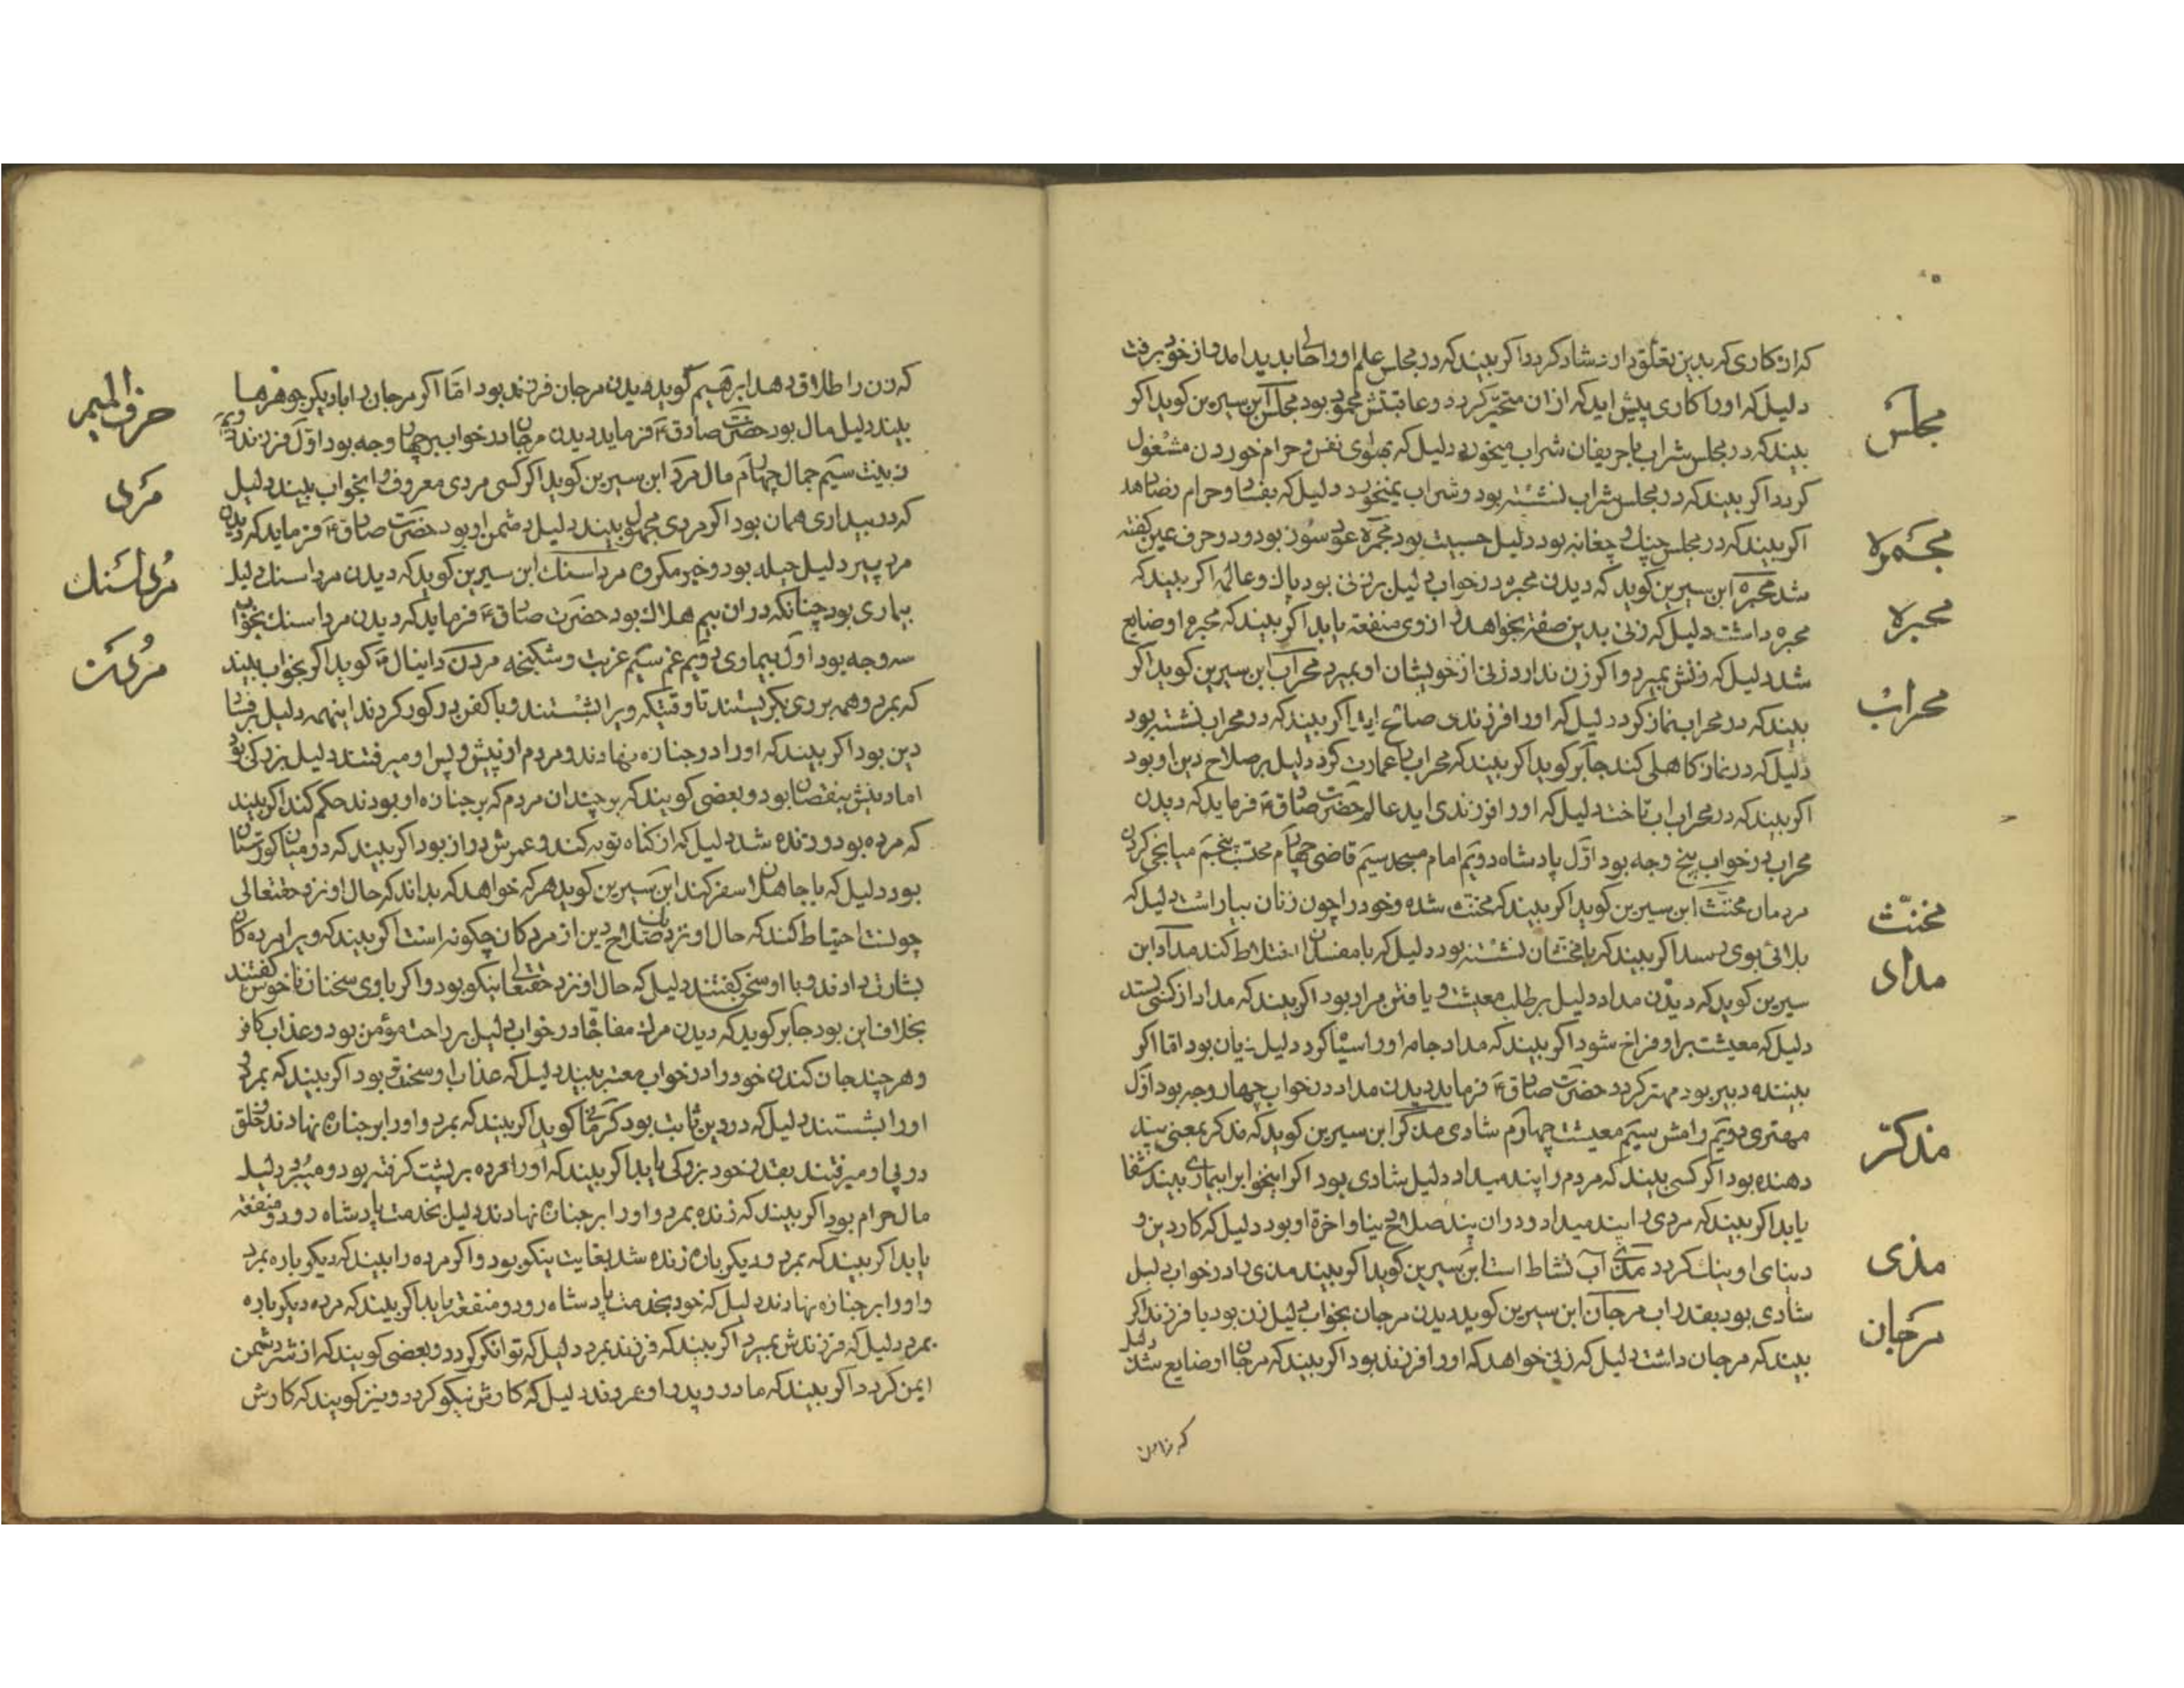 که از کاری که بدین تعلق دارد شاد کردد اکر بیند که در مجلس علم او را حالی بدید امد و از خود برفت
مجلس
دلیل که او را کاری پیش اید که از ان متحیر کردد و عاقبتش محمود بود مجلس ابن سیرین کوید اکر
بیند که در مجلس شراب با حریفان شراب میخورد دلیل که بهوای نفس و حرام خوردن مشغول
کردد اکر بیند که در مجلس شراب نشسته بود و شراب نمیخورد دلیل که بفساد و حرام رضا دهد
مجمره
اکر بیند که در مجلس چنك و چغانه بود دلیل مصیبت بود مجمره عود سوز بود و در حرف عین کفته
محبره
شد محبره ابن سیرین کوید که دیدن محبره در خواب دلیل بر زنی بود پاك و عالمه اکر بیند که
محبره داشت دلیل که زنی بدین صفة بخواهد و از وی منفعة یابد اکر بیند که محبره او ضایع
محراب
شد دلیل که زنش بمیرد و اکر زن ندارد زنی از خویشان او بمیرد محراب ابن سیرین کوید اکر
بیند که در محراب نماز کرد دلیل که او را فرزندی صالح اید اکر بیند که در محراب نشسته بود
دلیل که در نماز کاهلی کند جابر کوید اکر بیند که محراب را عمارت کرد دلیل بر صلاح دین او بود
اکر بیند که در محراب اب تاخت دلیل که او را فرزندی اید عالم حضرت صادق ع فرماید که دیدن
محراب در خواب پنج وجه بود اول پادشاه دویم امام مسجد سیم قاضی چهارم محتسب پنجم میانجی کردن
مخنث
مردمان مخنث ابن سیرین کوید اکر بیند که مخنث شده و خود را چون زنان بیاراست دلیل که
مداد
بلائی بوی رسد اکر بیند که با مخنثان نشسته بود دلیل که با مفسدان اختلاط کند مداد ابن
سیرین کوید که دیدن مداد دلیل بر طلب معیشت و یافتن مراد بود اکر بیند که مداد از کسی بستد
دلیل که معیشت بر او فراخ شود اکر بیند که مداد جامه او را سیاه کرد دلیل زیان بود اما اکر
بیننده دبیر بود مهتر کردد حضرت صادق ع فرماید دیدن مداد در خواب چهار وجه بود اول
مذکر
مهتری دویم رامش سیم معیشت چهارم شادی مذکر ابن سیرین کوید که مذکر بمعنی پند
دهنده بود اکر کسی بیند که مردم را پند میداد دلیل شادی بود اکر اینخواب را بیماری بیند شفا
یابد اکر بیند که مردی را پند میداد و در ان پند صلاح دنیا و اخرة او بود دلیل که کار دین و
مذی
دنیای او نیك کردد مذی آب نشاط است ابن سیرین کوید اکر بیند مذی را در خواب دلیل
مرجان
شادی بود بقدر اب مرجان ابن سیرین کوید دیدن مرجان بخواب دلیل زن بود یا فرزند اکر
بیند که مرجان داشت دلیل که زنی خواهد که او را فرزند بود اکر بیند که مرجان او ضایع شد دلیل
که زنرا
حرف المیم
که زن را طلاق دهد ابرهیم کوید دیدن مرجان فرزند بود اما اکر مرجان را با دیکر جوهرها
بیند دلیل مال بود حضرت صادق ع فرماید دیدن مرجان در خواب بر چهار وجه بود اول فرزند دویم
مرد
زینت سیم جمال چهارم مال مرد ابن سیرین کوید اکر کسی مردی معروف را بخواب بیند دلیل
که در بیداری همان بود اکر مردی مجهول بیند دلیل دشمن او بود حضرت صادق ع فرماید که دیدن
مرداسنك
مرد پیر دلیل حیله بود و خبر مکروه مرداسنك ابن سیرین کوید که دیدن مرداسنك دلیل
بیماری بود چنانکه در ان بیم هلاك بود حضرت صادق ع فرماید که دیدن مرداسنك بخواب
مردن
سه وجه بود اول بیماری دویم غم سیم غربت و شکنجه مردن دانیال ع کوید اکر بخواب بیند
که بمرد و همه بر وی بکریستند تا وقتیکه ویرا بشستند و با کفن در کور کردند اینهمه دلیل بر فساد
دین بود اکر بیند که او را در جنازه نهادند و مردم از پیش و پس او میرفتند دلیل بزرکی بود
اما دینش بنقصان بود و بعضی کویند که بر چندان مردم که بر جنازه او بودند حکم کند اکر بیند
که مرده بود و زنده شد دلیل که از کناه توبه کند و عمرش دراز بود اکر بیند که در میان کورستان
بود دلیل که با جاهلان سفر کند ابن سیرین کوید هر که خواهد که بداند که حال او نزد حقتعالی
چونست احتیاط کند که حال او نزد صلاح دین از مردکان چکونه است اکر بیند که ویرا مردکان
بشارت دادند و با او سخن کفتند دلیل که حال او نزد حقتعالی نیکو بود و اکر با وی سخنان ناخوش کفتند
بخلاف این بود جابر کوید که دیدن مرك مفاجا در خواب دلیل بر راحت مؤمن بود و عذاب کافر
و هر چند جان کندن خود را در خواب معتبر بیند دلیل که عذاب او سختر بود اکر بیند که بمرد و
او را بشستند دلیل که در دین ثابت بود کرمانی کوید اکر بیند که بمرد و او را بر جنازه نهادند و خلق
در پی او میرفتند بقدر خود بزرکی یابد اکر بیند که او را مرده بر پشت کرفته بود و میبرد دلیل
مال حرام بود اکر بیند که زنده بمرد و او را بر جنازه نهادند دلیل بخدمت پادشاه رود و منفعة
یابد اکر بیند که بمرد و دیکر باره زنده شد بغایت نیکو بود و اکر مرده را بیند که دیکر باره بمرد
و او را بر جنازه نهادند دلیل که خود بخدمت پادشاه رود و منفعة یابد اکر بیند که مرده دیکر باره
بمرد دلیل که فرزندش بمیرد اکر بیند که فرزند بمرد دلیل که توانکر کردد و بعضی کویند که از شر دشمن
ایمن کردد اکر بیند که مادر و پدر او مردند دلیل که کارش نیکو کردد و نیز کویند که کارش